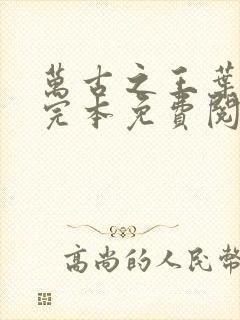 萬古之王葉
完本免費閱
高尚的人民幣